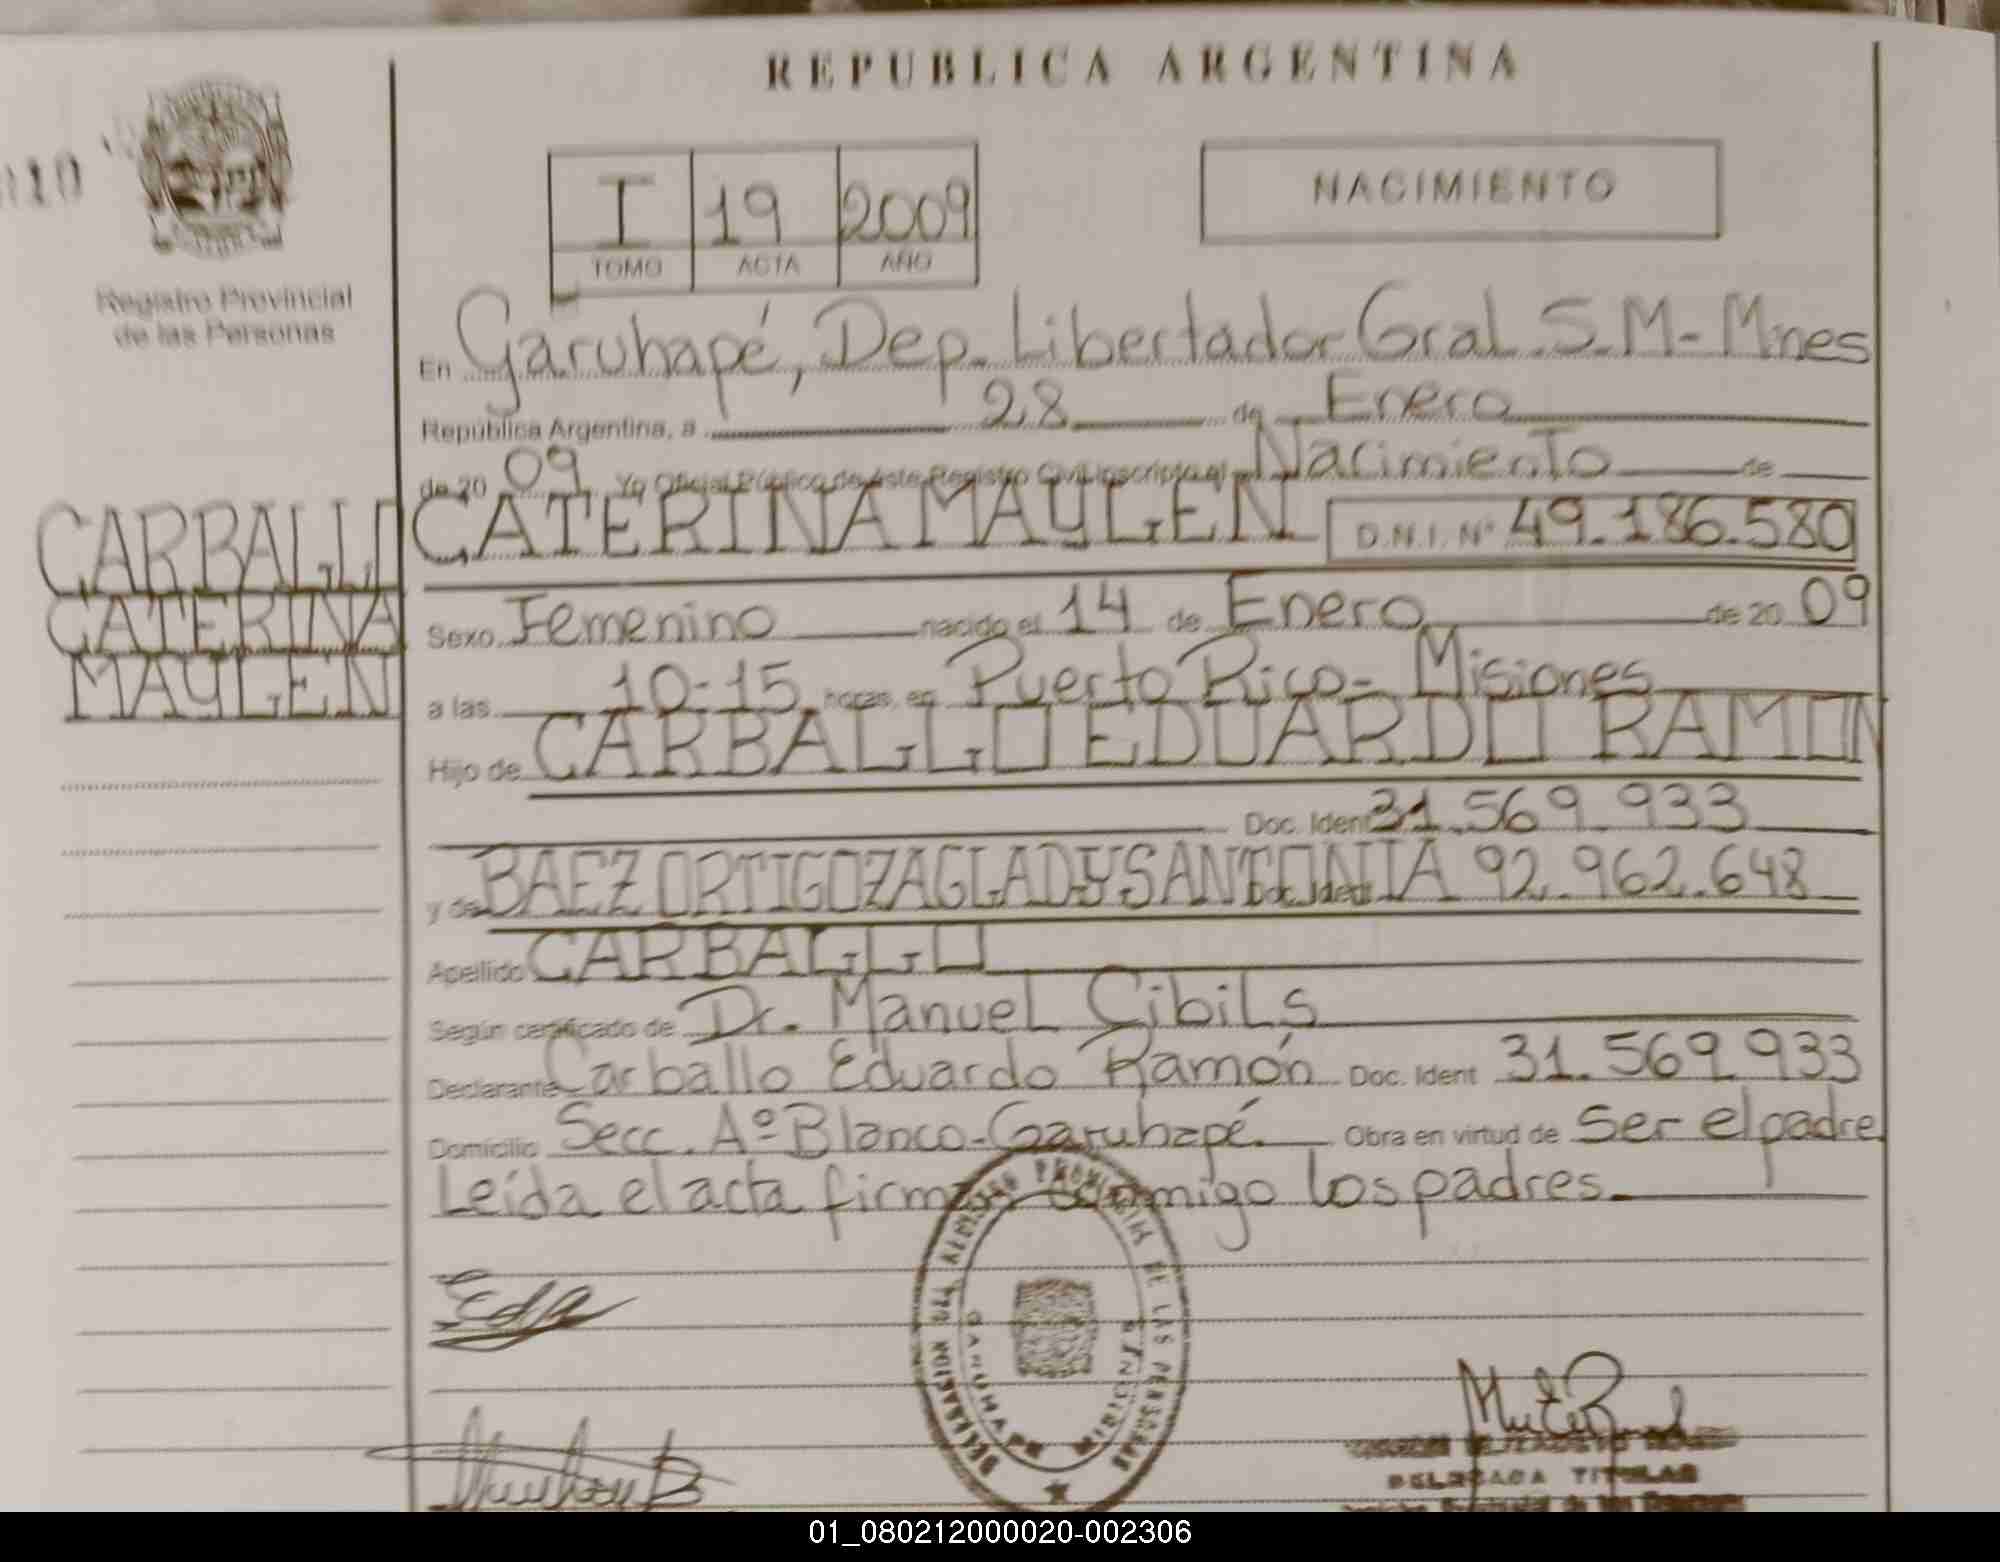 REPUBLICA ARGENTINA
110
I 19 2009
TOMO ACTA AÑO
NACIMIENTO
Registro Provincial
de las Personas
En Garuhapé, Dep. Libertador Gral. S.M- Mnes
República Argentina, a 28 de Enero
de 20 09 Yo Oficial Público de éste Registro Civil inscripto el Nacimiento de
CARBALLO
CATERINA
MAYLEN
CATERINA MAYLEN D.N.I. Nº 49.186.580
Sexo Femenino nacido el 14 de Enero de 20 09
a las 10-15 horas, en Puerto Rico- Misiones
Hijo de CARBALLO EDUARDO RAMON
Doc. Ident 31.569.933
y de BAEZ ORTIGOZA GLADYS ANTONIA Doc. Ident 92.962.648
Apellido CARBALLO
Según certificado de Dr. Manuel Cibils
Declarante Carballo Eduardo Ramón Doc. Ident 31.569.933
Domicilio Secc. Aº Blanco-Garuhapé. Obra en virtud de Ser el padre
Leída el acta firman conmigo los padres.
PROVINCIAL DE LAS PERSONAS
GARUHAPE MISIONES
DELEGADA TITULAR
01_080212000020-002306